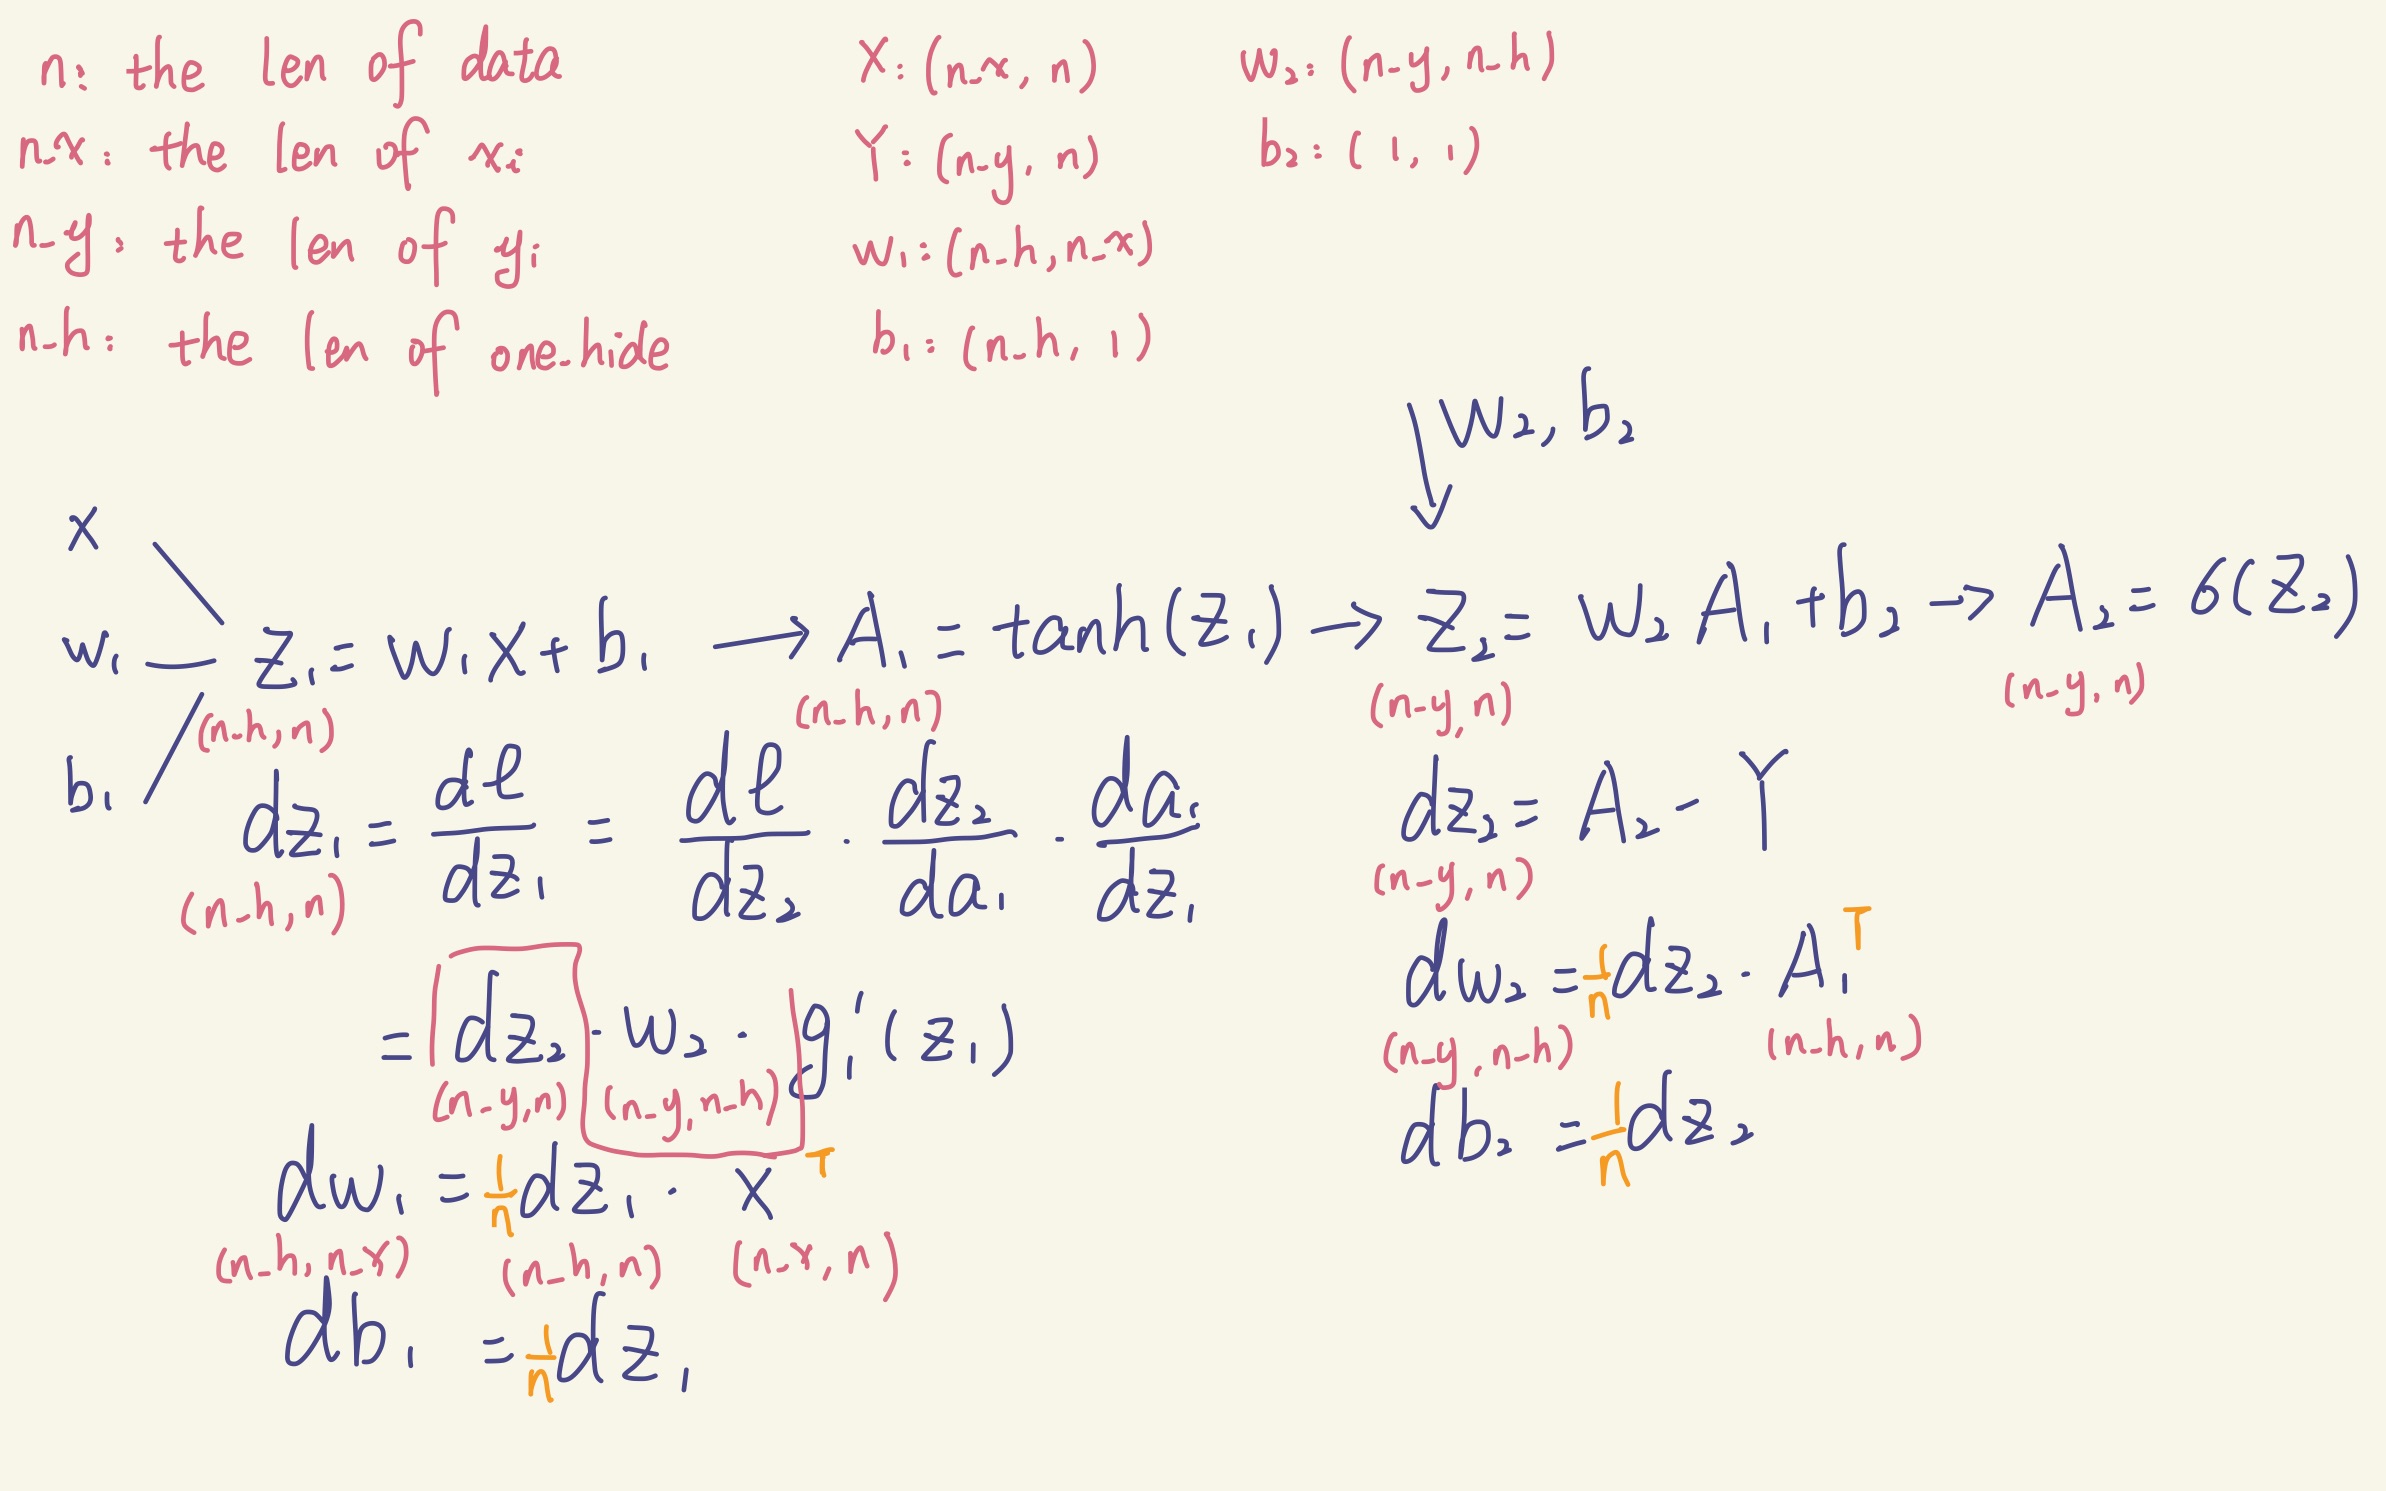 n: the len of data
n_x: the len of x_i
n_y: the len of y_i
n_h: the len of one_hide
X: (n_x, n)
Y: (n_y, n)
w₁: (n_h, n_x)
b₁: (n_h, 1)
w₂: (n_y, n_h)
b₂: (1, 1)
w₂, b₂
x
w₁
b₁
z₁ = w₁x + b₁ → A₁ = tanh(z₁) → z₂ = w₂A₁ + b₂ → A₂ = σ(z₂)
(n_h, n) (n_h, n) (n_y, n) (n_y, n)
dz₁ = dl/dz₁ = dl/dz₂ · dz₂/da₁ · da₁/dz₁
(n_h, n)
= dz₂ · w₂ · g₁'(z₁)
(n_y, n) (n_y, n_h)
dw₁ = 1/n dz₁ · x^T
(n_h, n_x) (n_h, n) (n_x, n)
db₁ = 1/n dz₁
dz₂ = A₂ - Y
(n_y, n)
dw₂ = 1/n dz₂ · A₁^T
(n_y, n_h) (n_h, n)
db₂ = 1/n dz₂